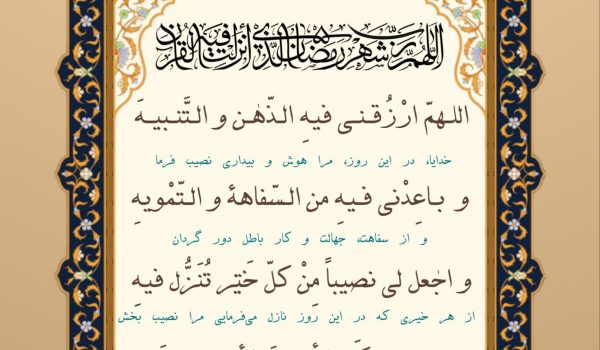 اللهم رب شهر رمضان الذي أنزلت فيه القرآن
اللهمّ ارْزُقنی فیهِ الذّهنَ و التَّنبیهَ
خدایا، در این روز، مرا هوش و بیداری نصیب فرما
و باعِدْنی فیهِ من السّفاههٔ و التّمْویهِ
و از سفاهت، جهالت و کار باطل دور گردان
و اجْعل لی نصیباً مِنْ کلّ خَیْرٍ تُنَزُّل فیهِ
از هر خیری که در این روز نازل می‌فرمایی مرا نصیب بخش